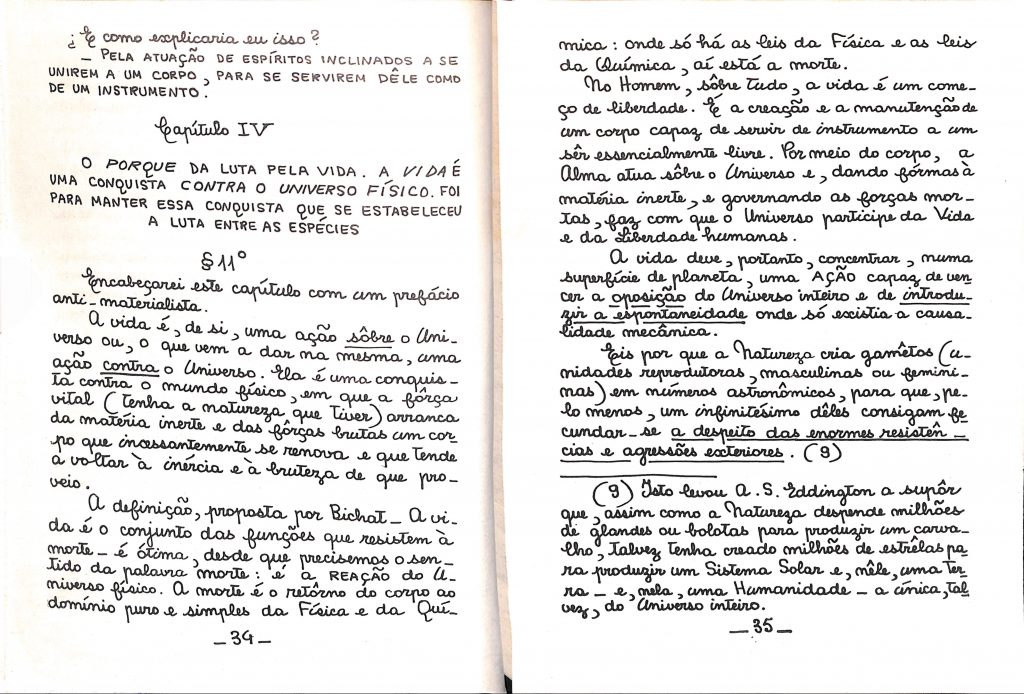 ¿E como explicaria eu isso?
— PELA ATUAÇÃO DE ESPÍRITOS INCLINADOS A SE
UNIREM A UM CORPO, PARA SE SERVIREM DÊLE COMO
DE UM INSTRUMENTO.
Capítulo IV
O PORQUE DA LUTA PELA VIDA. A VIDA É
UMA CONQUISTA CONTRA O UNIVERSO FÍSICO. FOI
PARA MANTER ESSA CONQUISTA QUE SE ESTABELECEU
A LUTA ENTRE AS ESPÉCIES
§ 11º
Encabeçarei este capítulo com um prefácio
anti-materialista.
A vida é, de si, uma ação sôbre o Uni-
verso ou, o que vem a dar na mesma, uma
ação contra o Universo. Ela é uma conquis-
ta contra o mundo físico, em que a fôrça
vital (tenha a natureza que tiver) arranca
da matéria inerte e das fôrças brutas um cor-
po que incessantemente se renova e que tende
a voltar à inércia e à bruteza de que pro-
veio.
A definição, proposta por Bichat — A vi-
da é o conjunto das funções que resistem à
morte — é ótima, desde que precisemos o sen-
tido da palavra morte: é a REAÇÃO do U-
niverso físico. A morte é o retôrno do corpo ao
domínio puro e simples da Física e da Quí-
— 34 —
mica: onde só há as leis da Física e as leis
da Química, aí está a morte.
No Homem, sôbre tudo, a vida é um come-
ço de liberdade. É a creação e a manutenção de
um corpo capaz de servir de instrumento a um
sêr essencialmente livre. Por meio do corpo, a
Alma atua sôbre o Universo e, dando fórmas à
matéria inerte, e governando as forças mor-
tas, faz com que o Universo participe da Vida
e da Liberdade humanas.
A vida deve, portanto, concentrar, numa
superfície de planeta, uma AÇÃO capaz de ven-
cer a oposição do Universo inteiro e de introdu-
zir a espontaneidade onde só existia a causa-
lidade mecânica.
Eis por que a Natureza cria gamêtos (u-
nidades reprodutoras, masculinas ou femini-
nas) em números astronômicos, para que, pe-
lo menos, um infinitésimo dêles consigam fe-
cundar-se a despeito das enormes resistên-
cias e agressões exteriores. (9)
(9) Isto levou A. S. Eddington a supôr
que, assim como a Natureza despende milhões
de glandes ou bolotas para produzir um carva-
lho, talvez tenha creado milhões de estrêlas pa-
ra produzir um Sistema Solar e, nêle, uma ter-
ra — e, nela, uma Humanidade — a única, tal-
vez, do Universo inteiro.
— 35 —